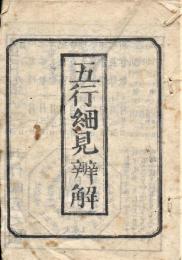 五行細見辨解